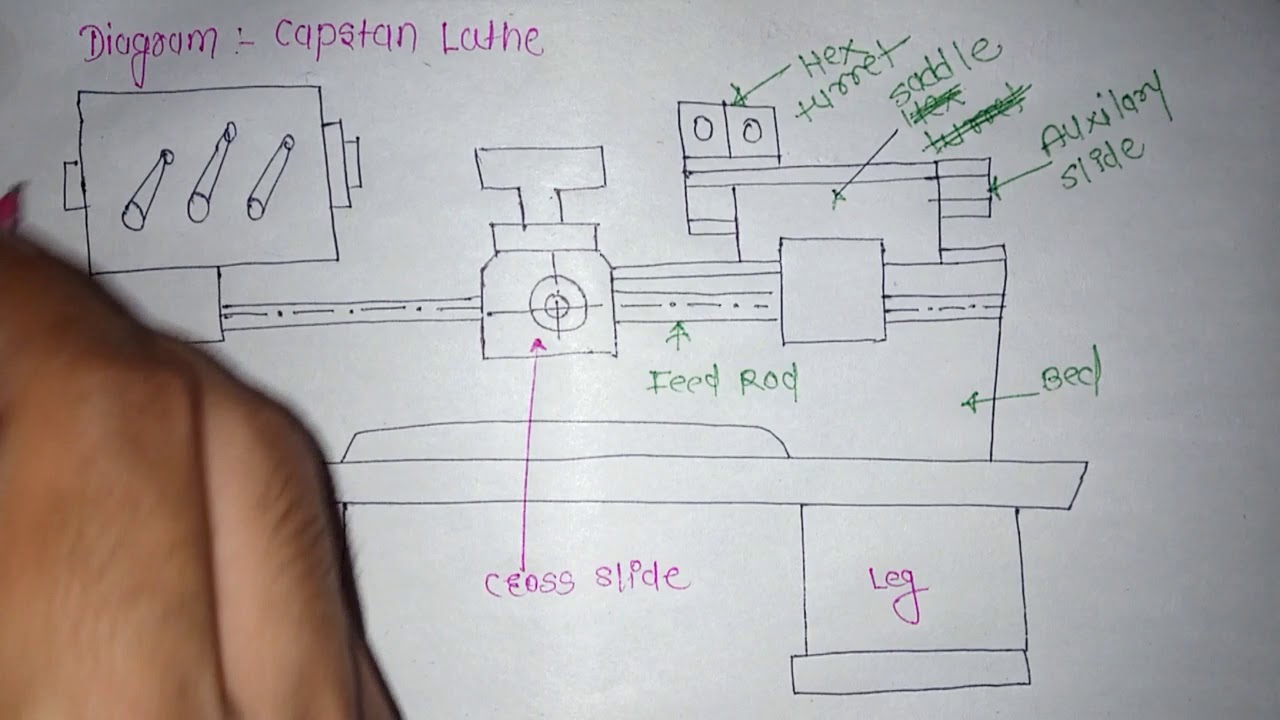 Diagram :- Capstan Lathe
Hex
turret
saddle
Auxilary
slide
Feed Rod
Bed
Cross slide
Leg